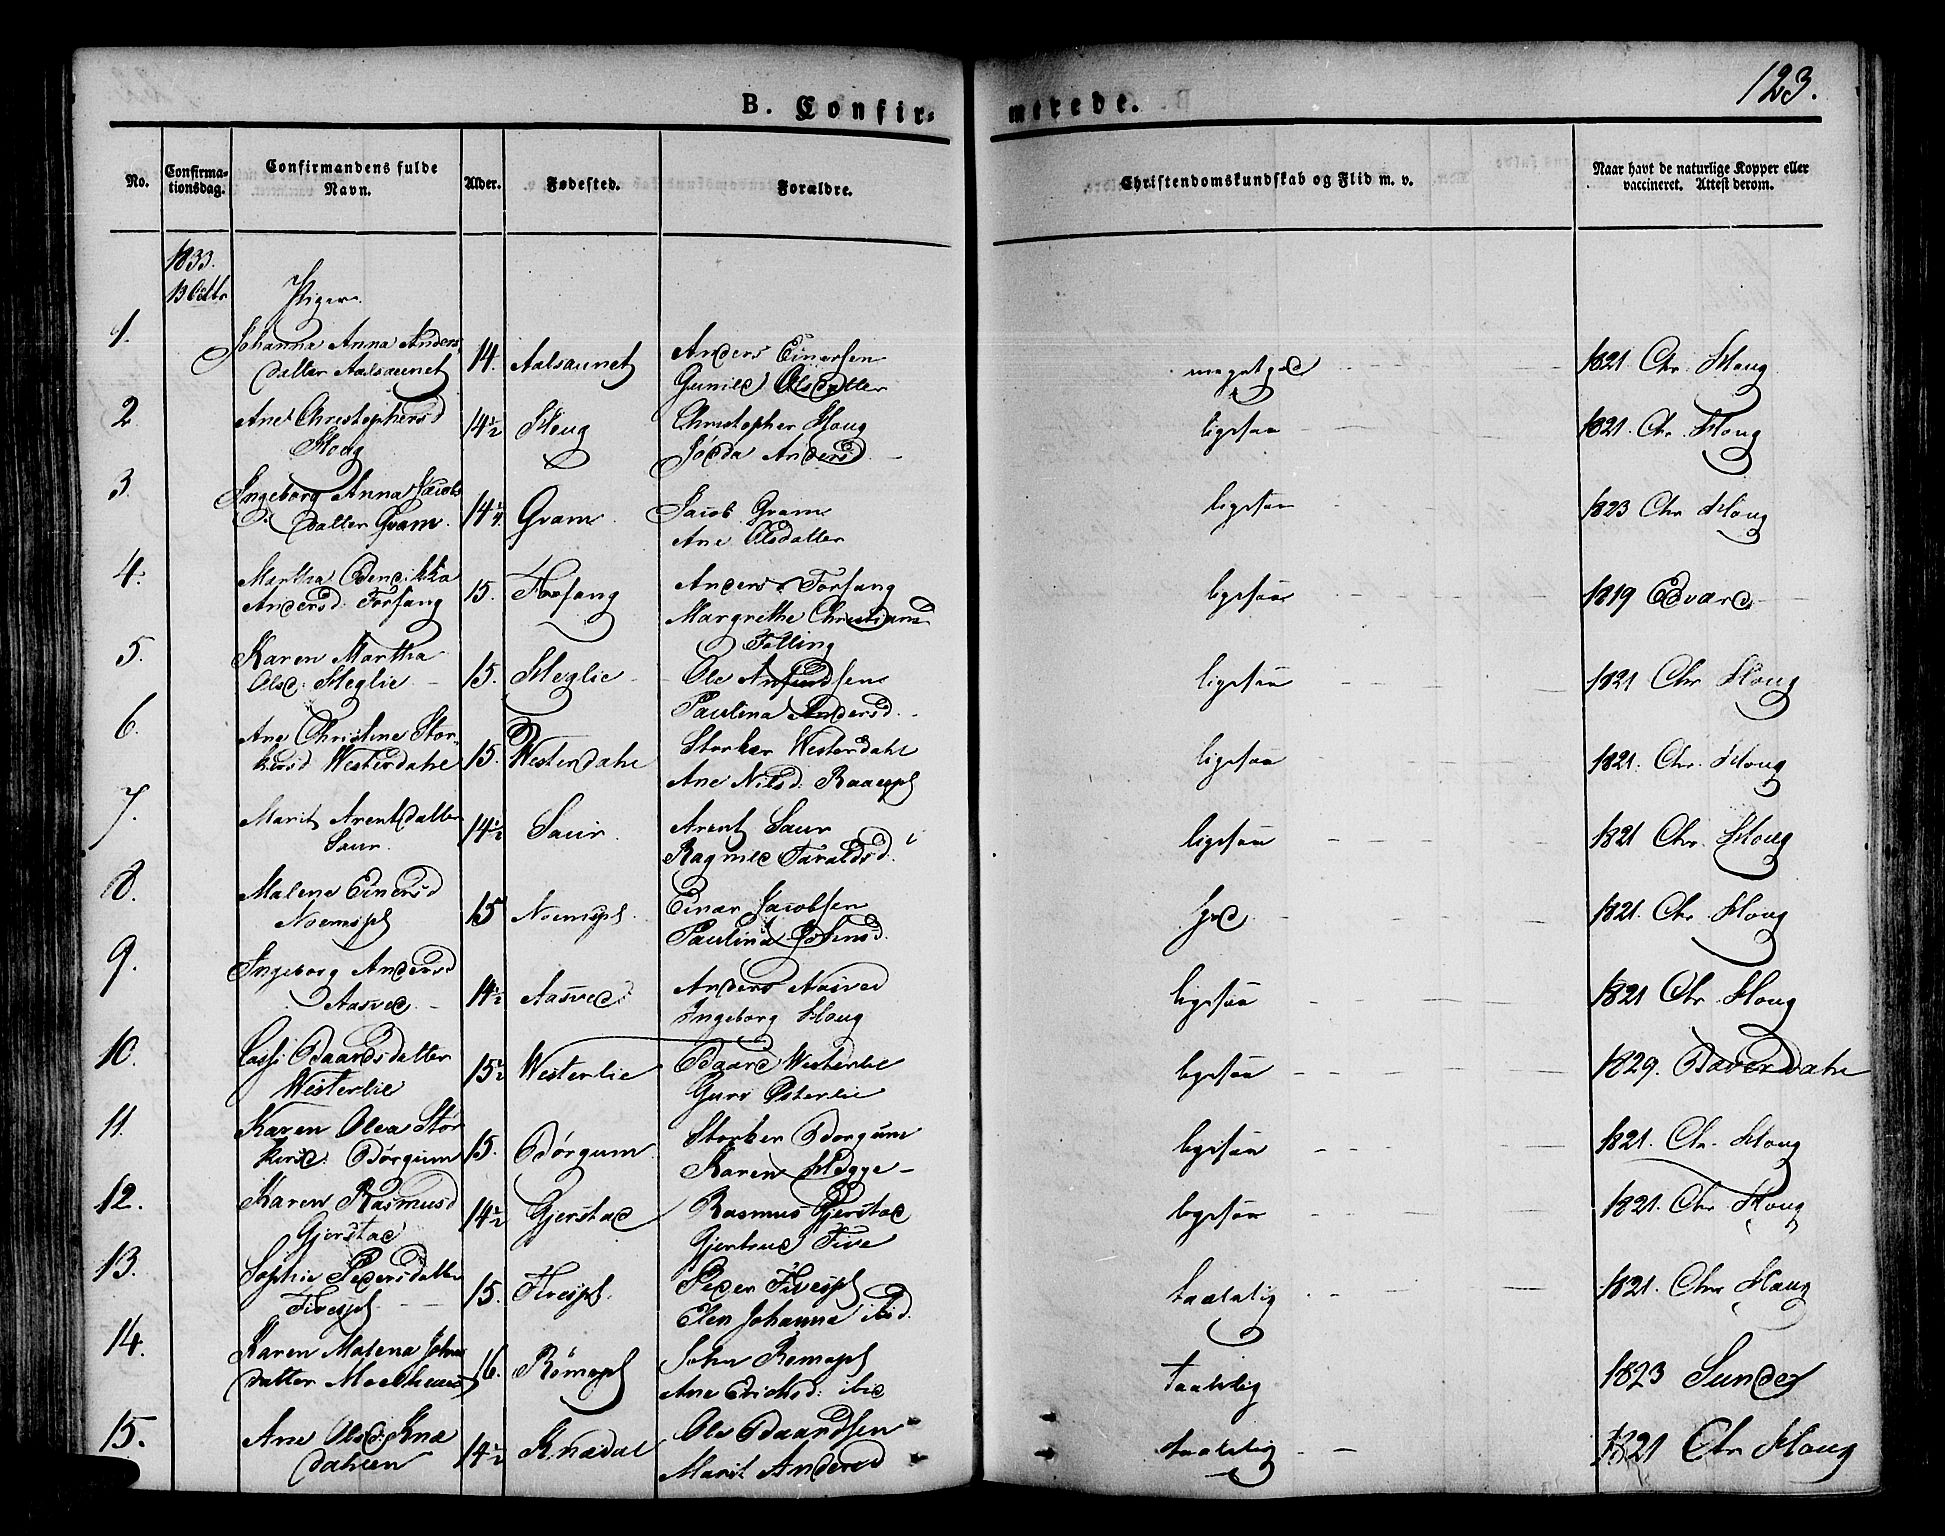 123.
B. Confir-
merede.
No.
Confirma-
tionsdag.
Confirmandens fulde
Navn.
Alder.
Fødested.
Forældre.
Christendomskundskab og Flid m. v.
Naar havt de naturlige Kopper eller
vaccineret. Attest derom.
1833.
13 Octbr
Piger.
1. Johanna Anna Anders
datter Aalsaunet 14. Aalsaunet Anders Einersen
Gunild Olsdatter megetgod 1821 Chr. Houg
2. Ane Christophersd
Houg 14½ Houg Christopher Houg
Anders ligesaa 1821. Chr. Houg
3. Ingeborg Anna Jacobs
datter Gram 14¼ Gram Jacob Gram
Ane Olsdatter ligesaa 1823 Chr Houg
4. Martha
Andersd. Forfang 15. Forfang Anders Forfang
Margrethe Christians
Folling ligesaa 1819 Edvard
5. Karen Martha
Olsd. Heglie 15. Heglie Ole Amundsen
Paulina Andersd. ligesaa 1821 Chr Houg
6. Ane Christine Stor-
kersd Westerdahl 15. Westerdahl Storker Westerdahl
Ane Nilsd. Raaespl ligesaa 1821. Chr. Houg
7. Marit Arentsdatter
Saur. 14½ Saur. Arent Saur
Ragnild Taraldsd. ligesaa 1821 Chr. Houg
8. Malene Einersd
Noemspl 15 Noemspl. Einar Jacobsen
Paulina Johnsd. god 1821. Chr Houg
9. Ingeborg Andersd
Aasved 14½ Aasved Anders Aasved
Ingeborg Houg ligesaa 1821 Chr. Houg
10. Baardsdatter
Westerlie 15½ Westerlie Baard Westerlie
Guru Østerlie ligesaa 1829. Baverdahl
11. Karen Olea Stor
kersd. Børgum 15. Børgum Storker Borgum
Karen Hegge ligesaa 1821. Chr. Houg
12. Karen Rasmusd
Gjerstad 14½ Gjerstad Rasmus Gjerstad
Gjertrud Five ligesaa 1821. Chr Houg
13. Sophie Pedersdatter
Fivespl. 15. Fivespl. Peder Fivespl
Elen Johanna ibid. taalelig 1821. Chr Houg
14. Karen Malena Johns
datter 16. Römospl John Remospl
Ane Erichsd. ibid taalelig 1823 Sunde
15. Ane Olsd. Kna
dahlen 14½ Knadal Ole Baardsen
Marit Andersd taalelig 1821 Chr Houg